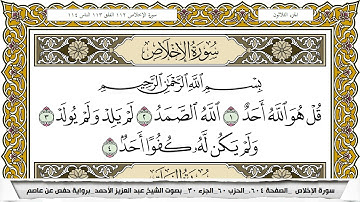 الجزء الثلاثون
سورة الإخلاص ١١٢ الفلق ١١٣ الناس ١١٤
سُورَةُ الإِخْلَاصِ
بِسْمِ اللَّهِ الرَّحْمَٰنِ الرَّحِيمِ
قُلْ هُوَ اللَّهُ أَحَدٌ ١ اللَّهُ الصَّمَدُ ٢ لَمْ يَلِدْ وَلَمْ يُولَدْ ٣
وَلَمْ يَكُن لَّهُۥ كُفُوًا أَحَدٌ ٤
سورة الإخلاص _الصفحة ٦٠٤_ الحزب ٦٠_الجزء ٣٠_ بصوت الشيخ عبد العزيز الأحمد_برواية حفص عن عاصم